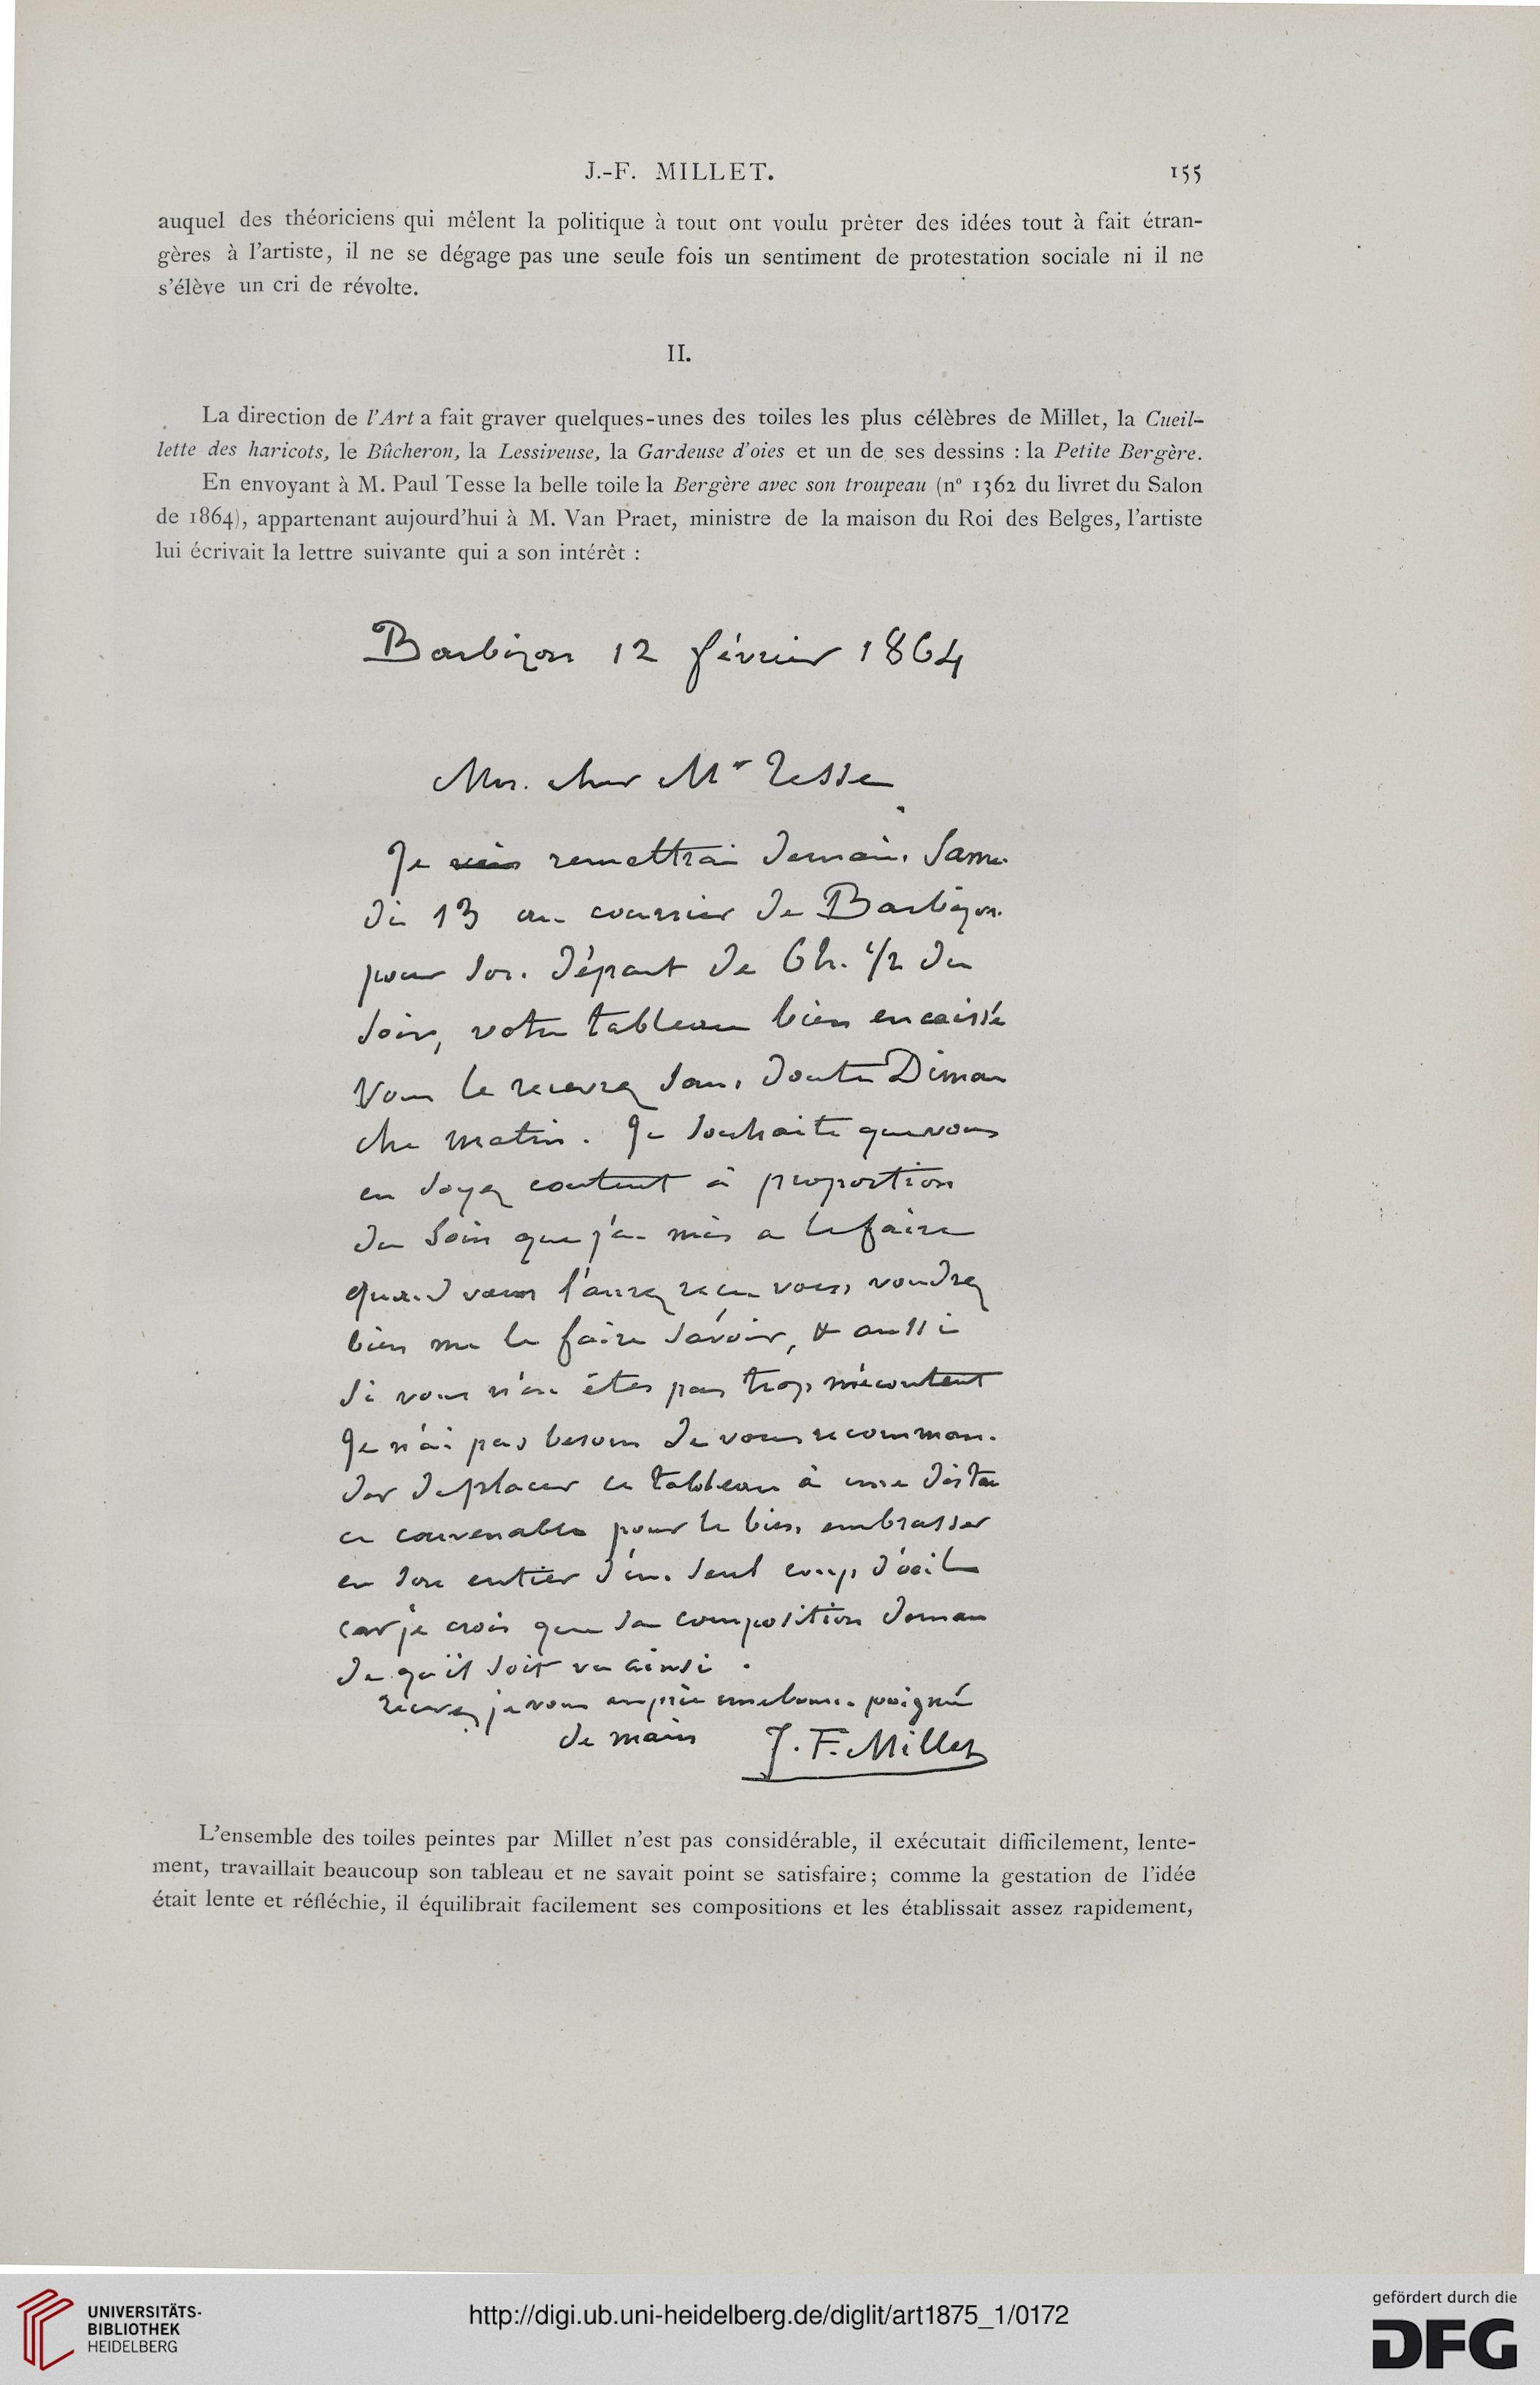 J.-F. MILLET. 155
auquel des théoriciens qui mêlent la politique à tout ont voulu prêter des idées tout à fait étran-
gères à l'artiste, il ne se dégage pas une seule fois un sentiment de protestation sociale ni il ne
s'élève un cri de révolte.
II.
La direction de l'Art a fait graver quelques-unes des toiles les plus célèbres de Millet, la Cueil-
lette des haricots, le Bûcheron, la Lessiveuse, la Gardeuse d'oies et un de ses dessins : la Petite Bergère.
En envoyant à M. Paul Tesse la belle toile la Bergère avec son troupeau (n° 1362 du livret du Salon
de 1864), appartenant aujourd'hui à M. Van Praet, ministre de la maison du Roi des Belges, l'artiste
lui écrivait la lettre suivante qui a son intérêt :
Barbizon 12 février 1864
Mon cher Mr Tesse
Je remettrai demain Same-
di 13 au courrier de Barbizon
pour son départ de 6h. 1/2 du
soir, votre tableau bien encaissé
Vous le recevrez sans doute Diman
che matin. Je souhaite que vous
en soyez content à proportion
du soin que j'ai mis a le faire
quand vous l'aurez reçu vous voudrez
bien me le faire savoir, & aussi
si vous n'en êtes pas trop mécontent
Je n'ai pas besoin de vous recomman-
der de placer ce tableau à une distan
ce convenable pour le bien embrasser
en son entier d'un seul coup d'œil
car je crois que sa composition deman
de qu'il soit vu ainsi.
Recevez je vous en prie une bonne poignée
de main J. F. Millet
L'ensemble des toiles peintes par Millet n'est pas considérable, il exécutait difficilement, lente-
ment, travaillait beaucoup son tableau et ne savait point se satisfaire; comme la gestation de l'idée
était lente et réfléchie, il équilibrait facilement ses compositions et les établissait assez rapidement,
UNIVERSITÄTS-
BIBLIOTHEK
HEIDELBERG
http://digi.ub.uni-heidelberg.de/diglit/art1875_1/0172
gefördert durch die
DFG